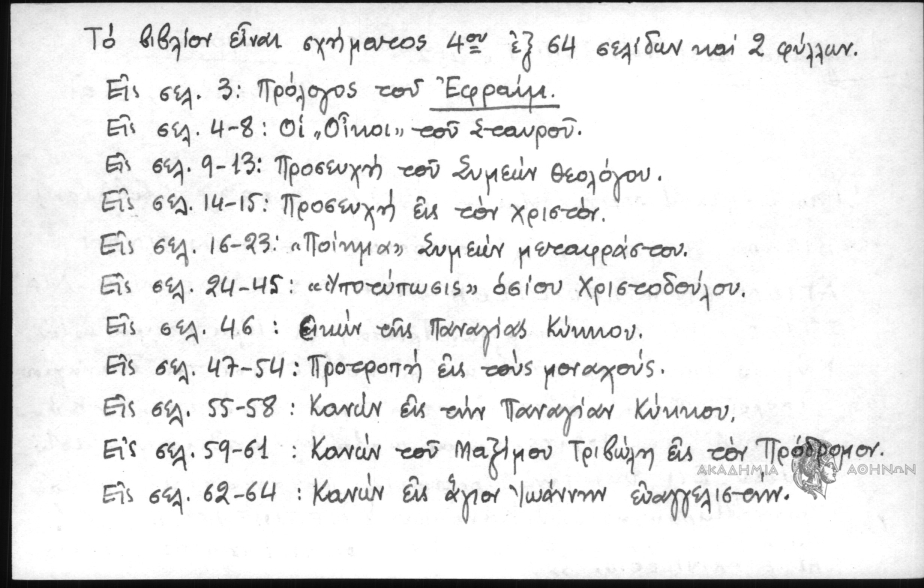 Τό βιβλίον εἶναι σχήματος 4ον ἐξ 64 σελίδων καί 2 φύλλων.
Εἰς σελ. 3: Πρόλογος τοῦ Ἐφραίμ.
Εἰς σελ. 4-8: Οἱ „Οἶκοι» τοῦ Σταυροῦ.
Εἰς σελ. 9-13: Προσευχή τοῦ Συμεών Θεολόγου.
Εἰς σελ. 14-15: Προσευχή εἰς τόν Χριστόν.
Εἰς σελ. 16-23: «Ποίημα» Συμεών μεταφράστου.
Εἰς σελ. 24-45: «Ὑποτύπωσις» ὁσίου Χριστοδούλου.
Εἰς σελ. 46 : εἰκών τῆς Παναγίας Κύκκου.
Εἰς σελ. 47-54: Προτροπή εἰς τούς μοναχούς.
Εἰς σελ. 55-58 : Κανών εἰς τήν Παναγίαν Κύκκου.
Εἰς σελ. 59-61 : Κανών τοῦ Μαξίμου Τριβώλη εἰς τόν Πρόδρομον.
ΑΚΑΔΗΜΙΑ ΑΘΗΝΩΝ
Εἰς σελ. 62-64 : Κανών εἰς ἅγιον Ἰωάννην εὐαγγελιστήν.